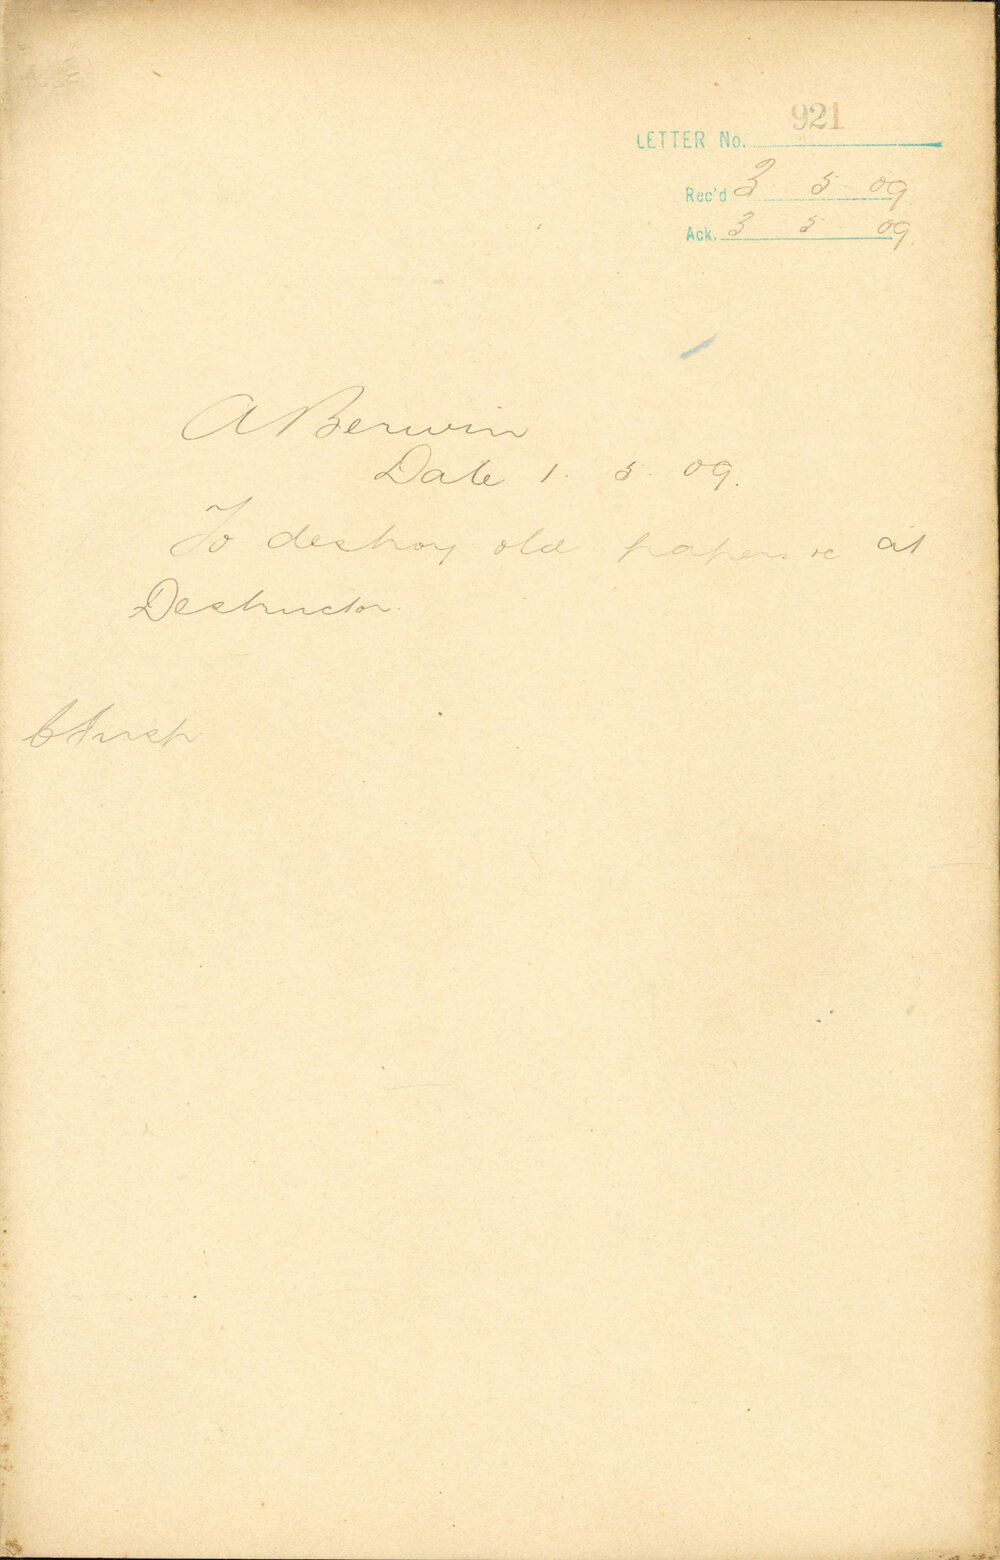 LETTER No. 921
Rec'd 3 5 09
Ack. 3 5 09.
A Berwin
Date 1. 5. 09.
To destroy old papers &c at
Destructor.